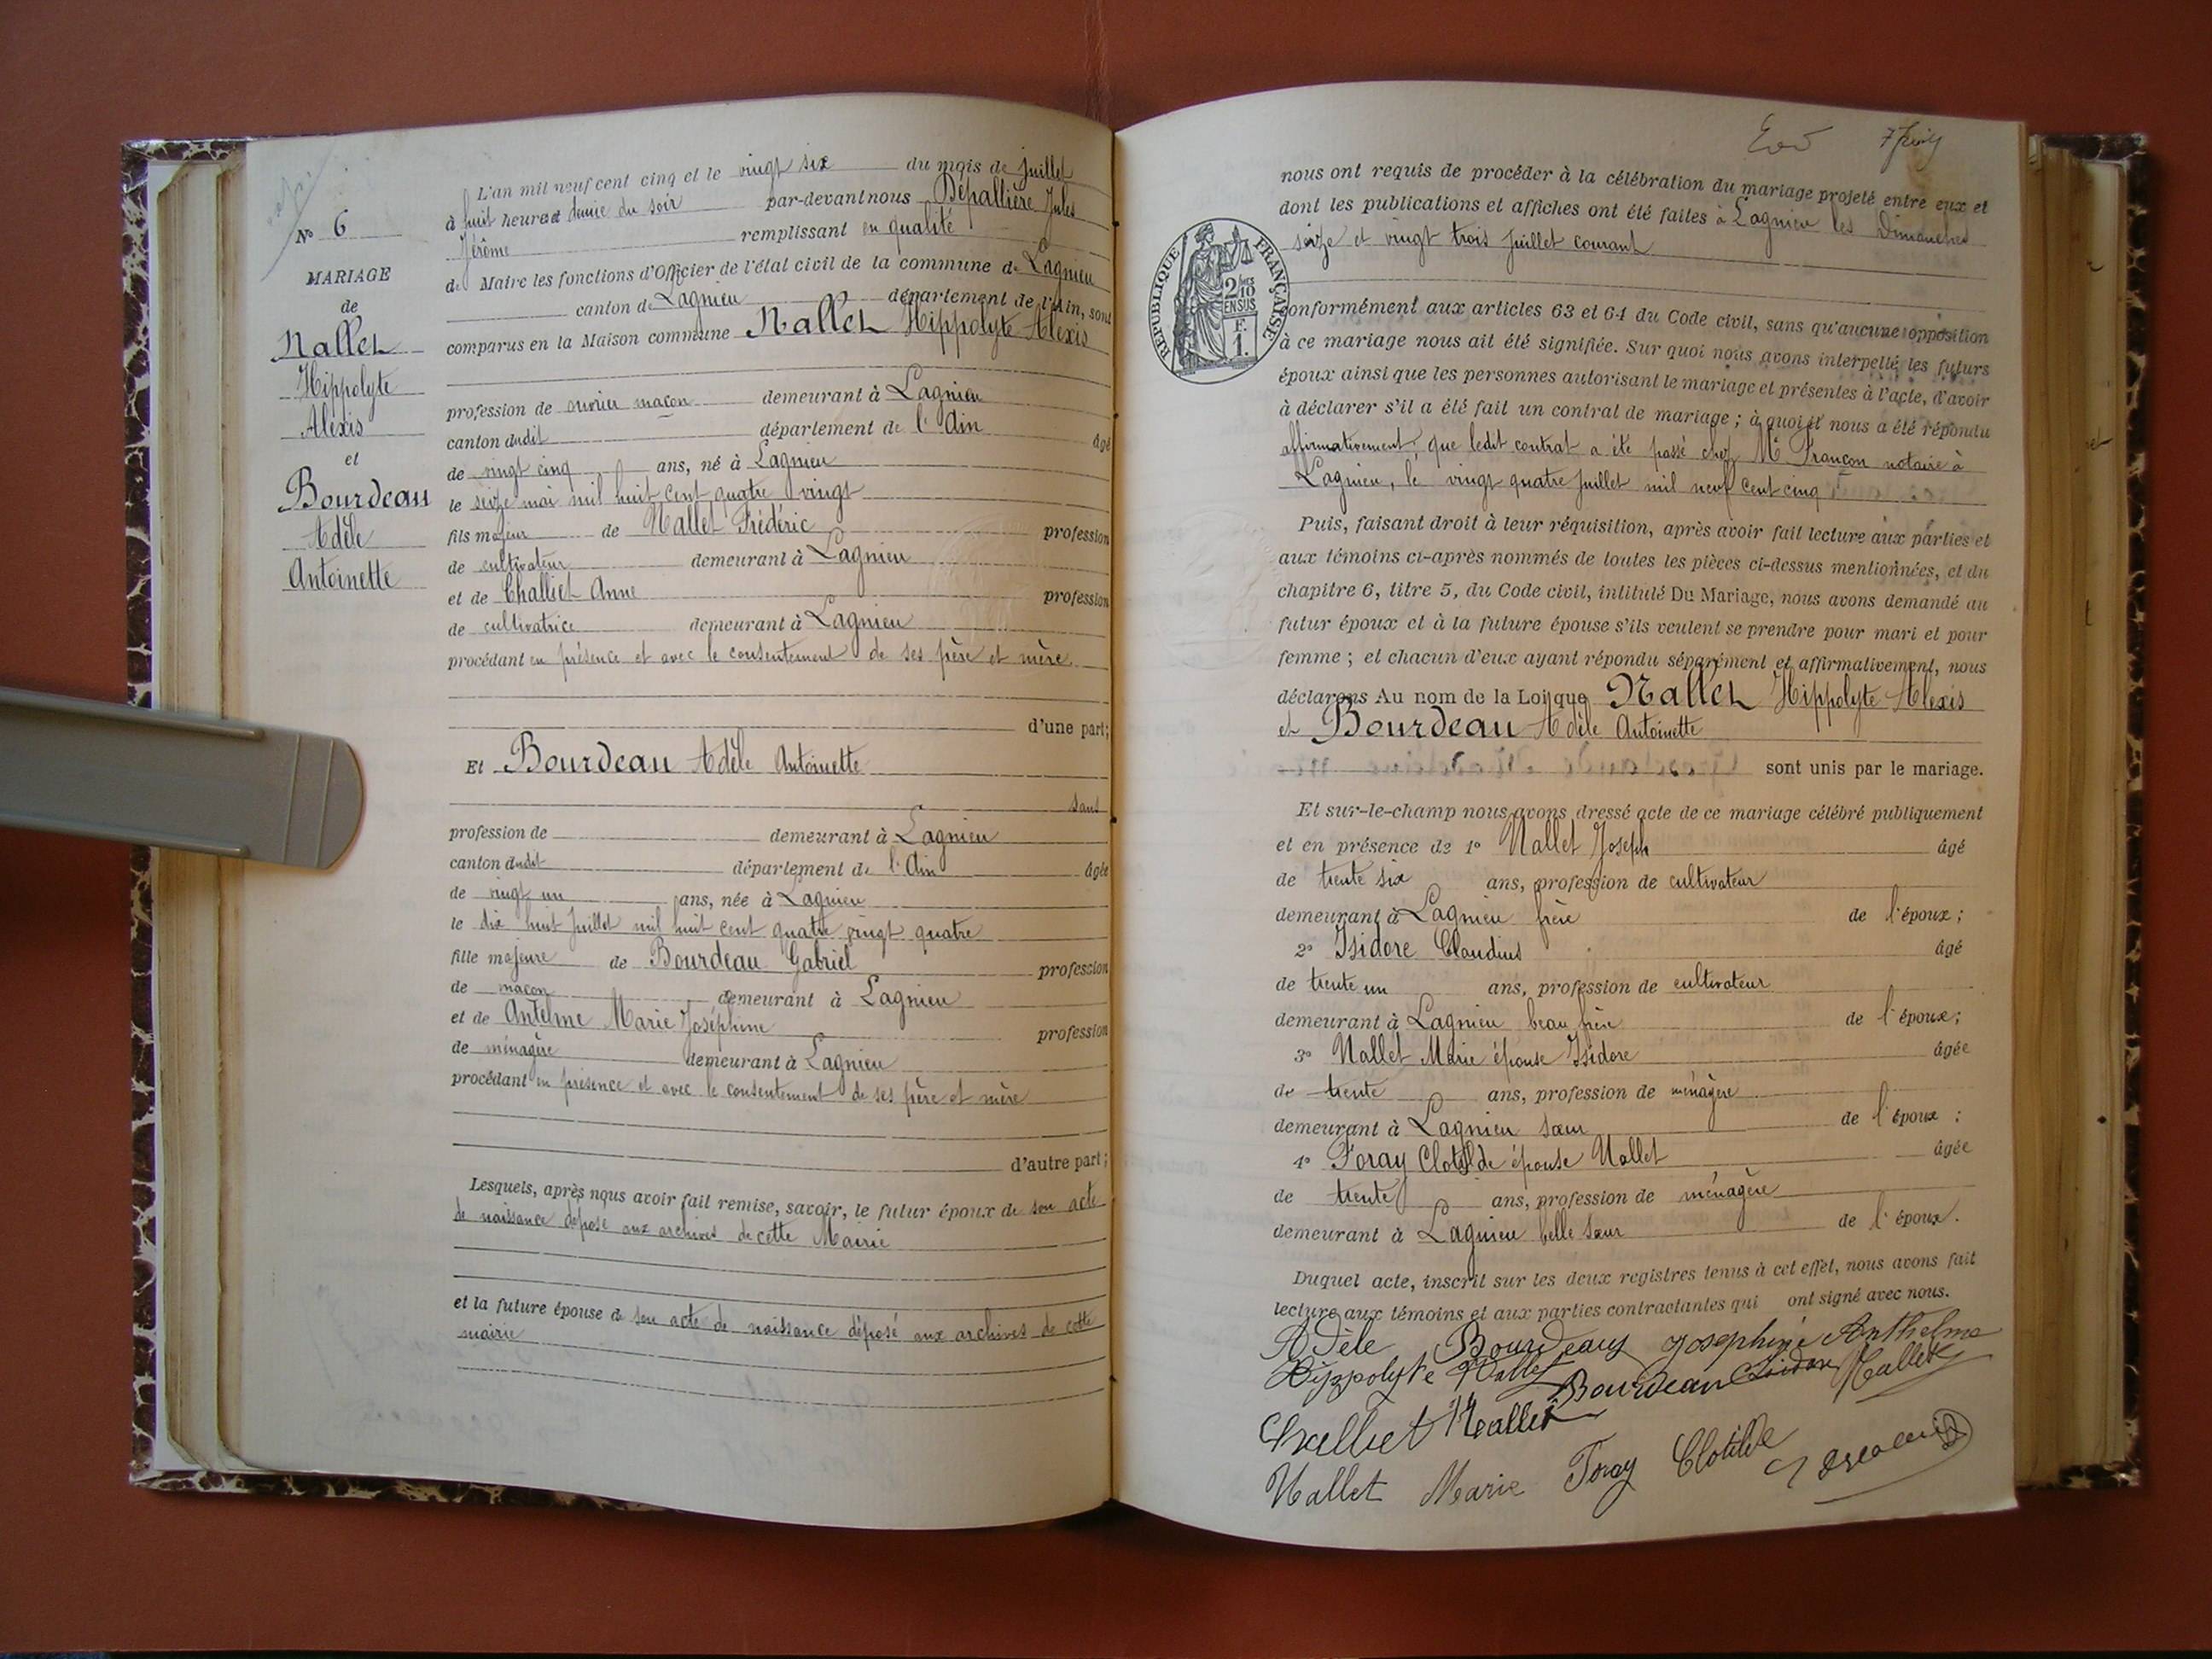 N° 6
MARIAGE
de
Nallet
Hippolyte
Alexis
et
Bourdeau
Adèle
Antoinette
L'an mil neuf cent cinq et le vingt six du mois de juillet
à huit heures et demie du soir par-devant nous Dépallière Jules
Jérôme remplissant en qualité
de Maire les fonctions d'Officier de l'état civil de la commune de Lagnieu
canton de Lagnieu département de l'Ain, sont
comparus en la Maison commune Nallet Hippolyte Alexis
profession de ouvrier maçon demeurant à Lagnieu
canton dudit département de l'Ain âgé
de vingt cinq ans, né à Lagnieu
le seize mai mil huit cent quatre vingt
fils majeur de Nallet Frédéric profession
de cultivateur demeurant à Lagnieu
et de Challiet Anne profession
de cultivatrice demeurant à Lagnieu
procédant en présence et avec le consentement de ses père et mère
d'une part;
Et Bourdeau Adèle Antoinette
sans
profession de demeurant à Lagnieu
canton dudit département de l'Ain âgée
de vingt un ans, née à Lagnieu
le dix huit juillet mil huit cent quatre vingt quatre
fille majeure de Bourdeau Gabriel profession
de maçon demeurant à Lagnieu
et de Antelme Marie Joséphine profession
de ménagère demeurant à Lagnieu
procédant en présence et avec le consentement de ses père et mère
d'autre part;
Lesquels, après nous avoir fait remise, savoir, le futur époux de son acte
de naissance déposé aux archives de cette Mairie
et la future épouse de son acte de naissance déposé aux archives de cette
mairie
nous ont requis de procéder à la célébration du mariage projeté entre eux et
dont les publications et affiches ont été faites à Lagnieu les Dimanches
seize et vingt trois juillet courant
RÉPUBLIQUE FRANÇAISE
2/10
EN SUS
F.
1.
conformément aux articles 63 et 64 du Code civil, sans qu'aucune opposition
à ce mariage nous ait été signifiée. Sur quoi nous avons interpellé les futurs
époux ainsi que les personnes autorisant le mariage et présentes à l'acte, d'avoir
à déclarer s'il a été fait un contrat de mariage ; à quoi il nous a été répondu
affirmativement, que ledit contrat a été passé chez Me Françon notaire à
Lagnieu, le vingt quatre juillet mil neuf cent cinq
Puis, faisant droit à leur réquisition, après avoir fait lecture aux parties et
aux témoins ci-après nommés de toutes les pièces ci-dessus mentionnées, et du
chapitre 6, titre 5, du Code civil, intitulé Du Mariage, nous avons demandé au
futur époux et à la future épouse s'ils veulent se prendre pour mari et pour
femme ; et chacun d'eux ayant répondu séparément et affirmativement, nous
déclarons Au nom de la Loi que Nallet Hippolyte Alexis
et Bourdeau Adèle Antoinette
sont unis par le mariage.
Et sur-le-champ nous avons dressé acte de ce mariage célébré publiquement
et en présence de 1° Nallet Joseph âgé
de trente six ans, profession de cultivateur
demeurant à Lagnieu frère de l'époux ;
2° Isidore Claudius âgé
de trente un ans, profession de cultivateur
demeurant à Lagnieu beau frère de l'époux ;
3° Nallet Marie épouse Isidore âgée
de trente ans, profession de ménagère
demeurant à Lagnieu sœur de l'époux ;
4° Foray Clotilde épouse Nallet âgée
de trente ans, profession de ménagère
demeurant à Lagnieu belle sœur de l'époux.
Duquel acte, inscrit sur les deux registres tenus à cet effet, nous avons fait
lecture aux témoins et aux parties contractantes qui ont signé avec nous.
Adèle Bourdeau Josephine Anthelme
Hippolyte Nallet Bourdeau Isidore Nallet
Challiet Nallet
Nallet Marie Foray Clotilde